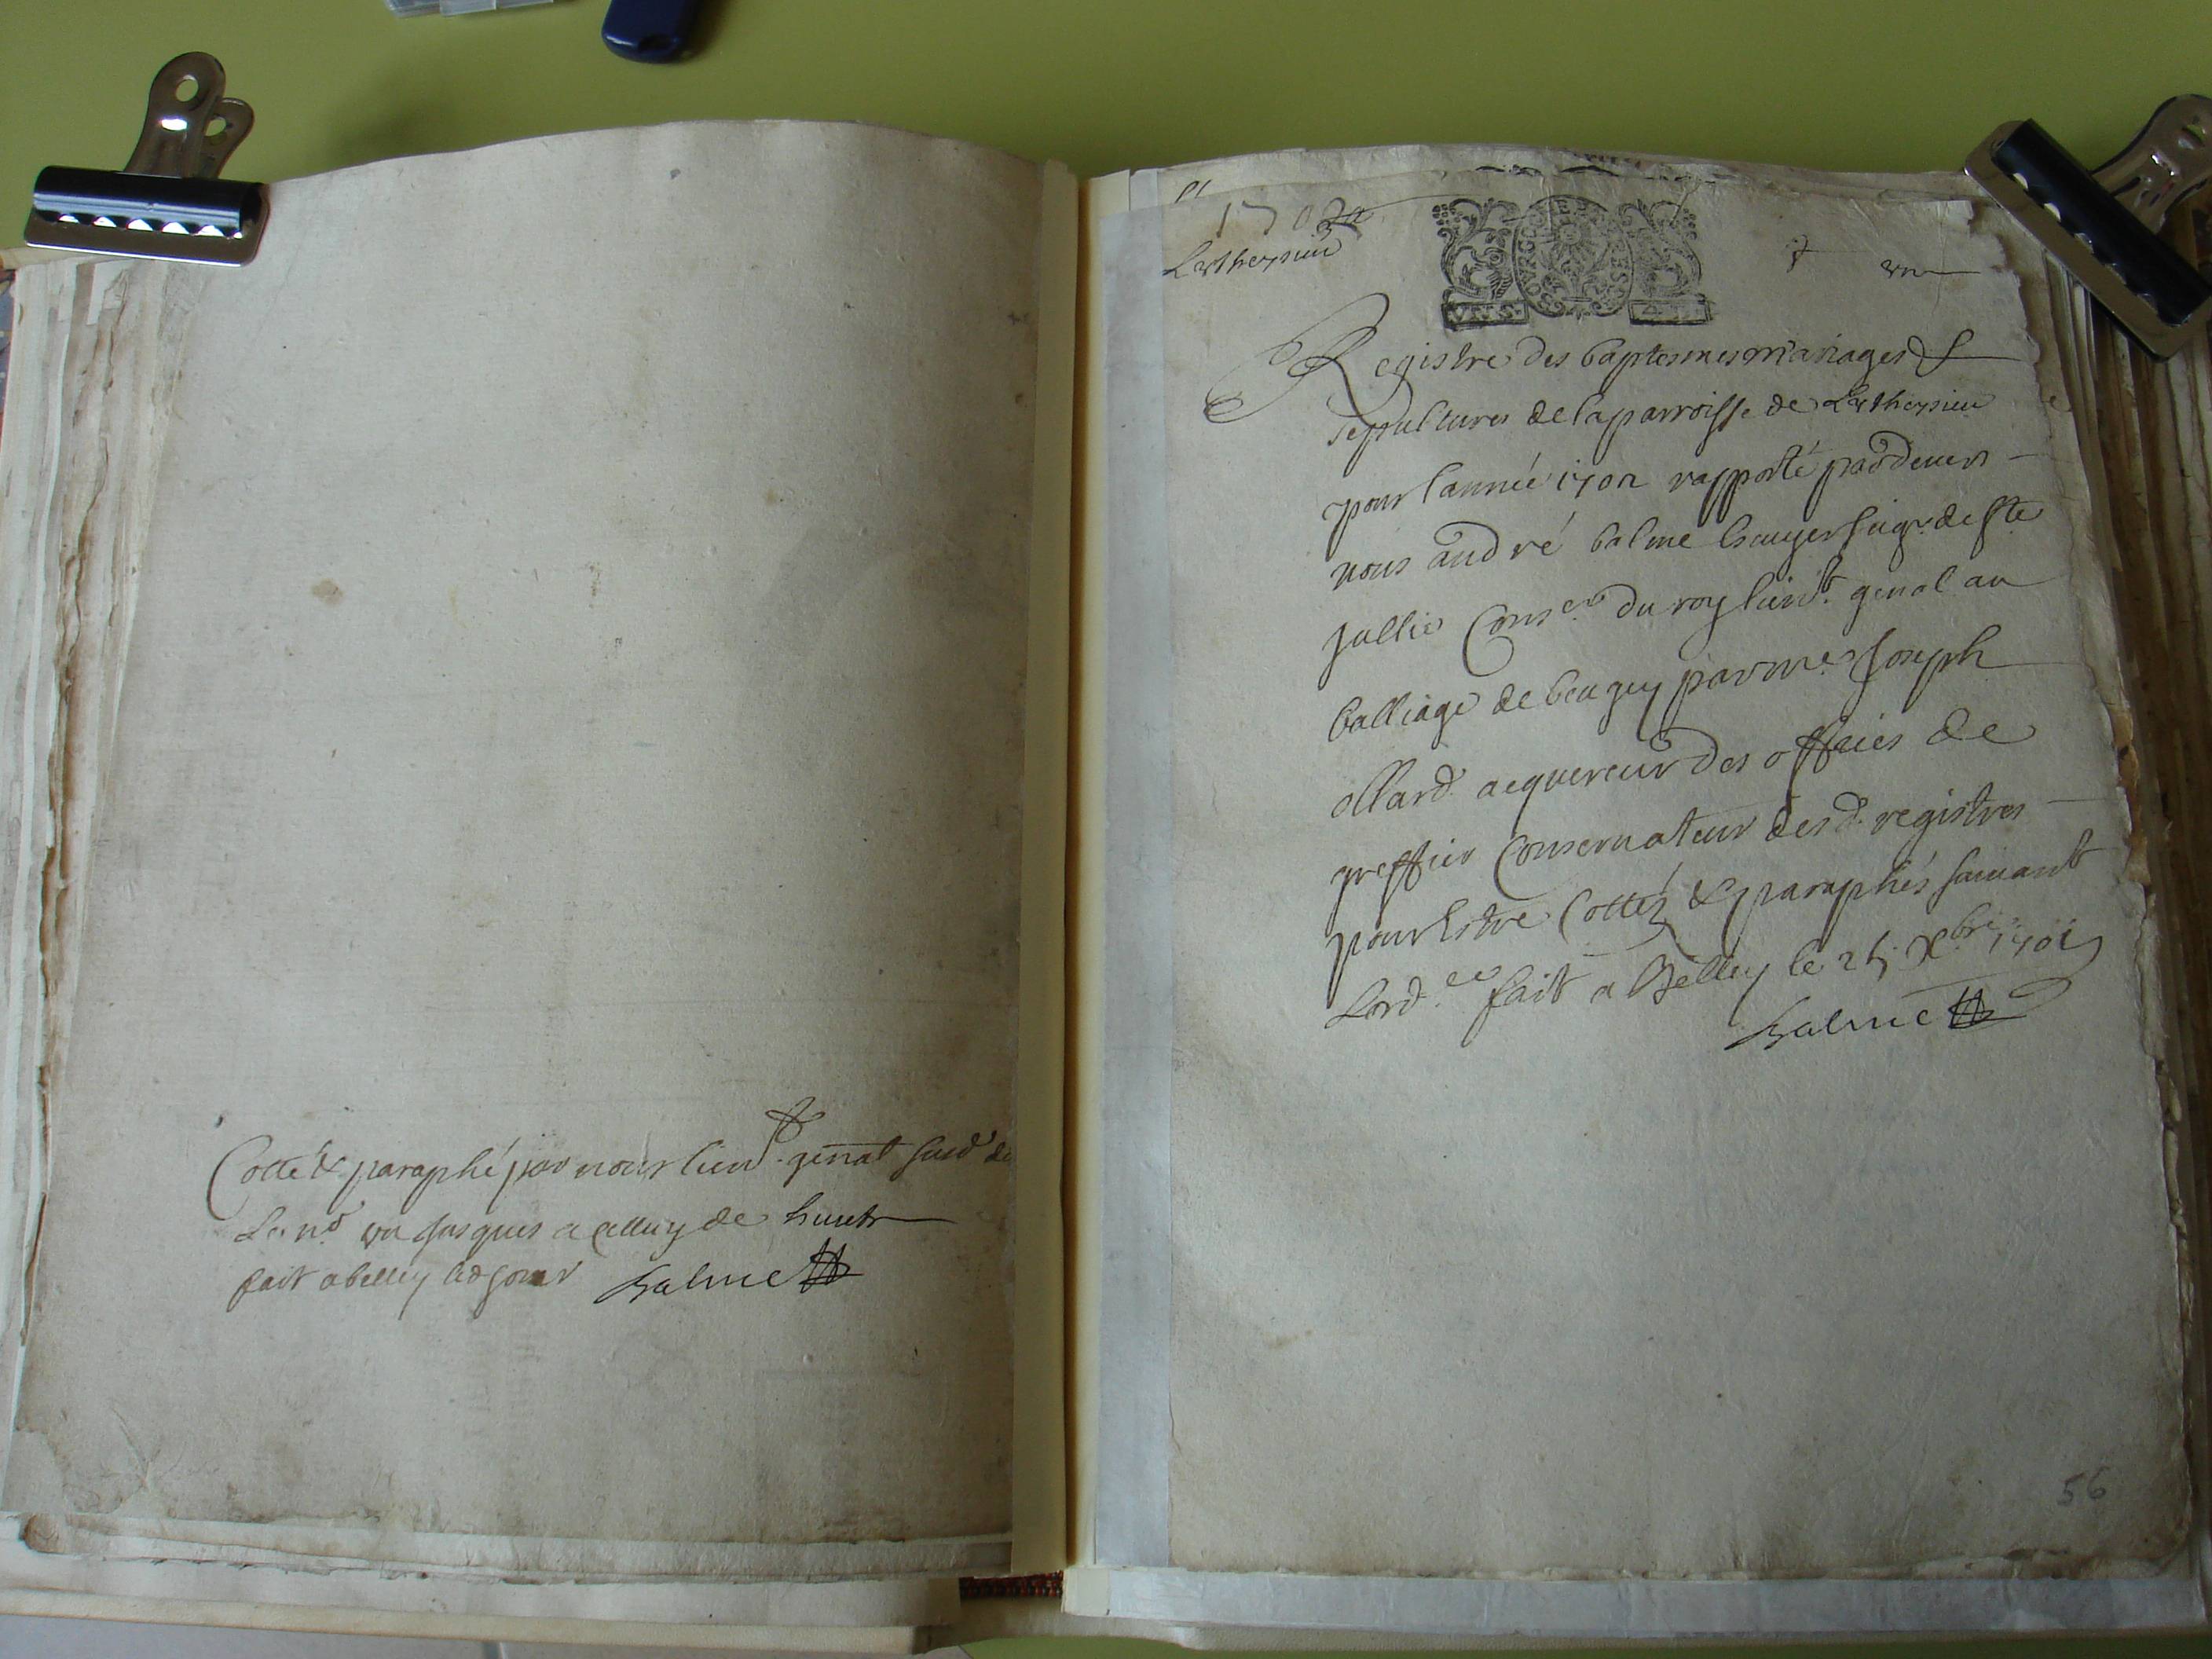 Cotté & paraphé par nous lieut. genal susd.
Le no. un jusques a celluy de huict
fait a belley led jour Balme
1702
Lartheysieu
un
GENER BOVRGO BRESSE
VN S. 4 D.
Registre des baptesmes mariages &
sepultures de la parroisse de Lartheysieu
pour l'année 1702 rapporté pardevers
nous andré balme Escuyer seigr. de ste
jullie Conser. du roy lieut. genal au
balliage de beugey par me. Joseph
ollard acquereur des offices de
greffier Conservateur desd. registres
pour Estre Cottéz & paraphés suivant
Lord.ce fait a Belley le 25 Xbre 1701
Balme
56